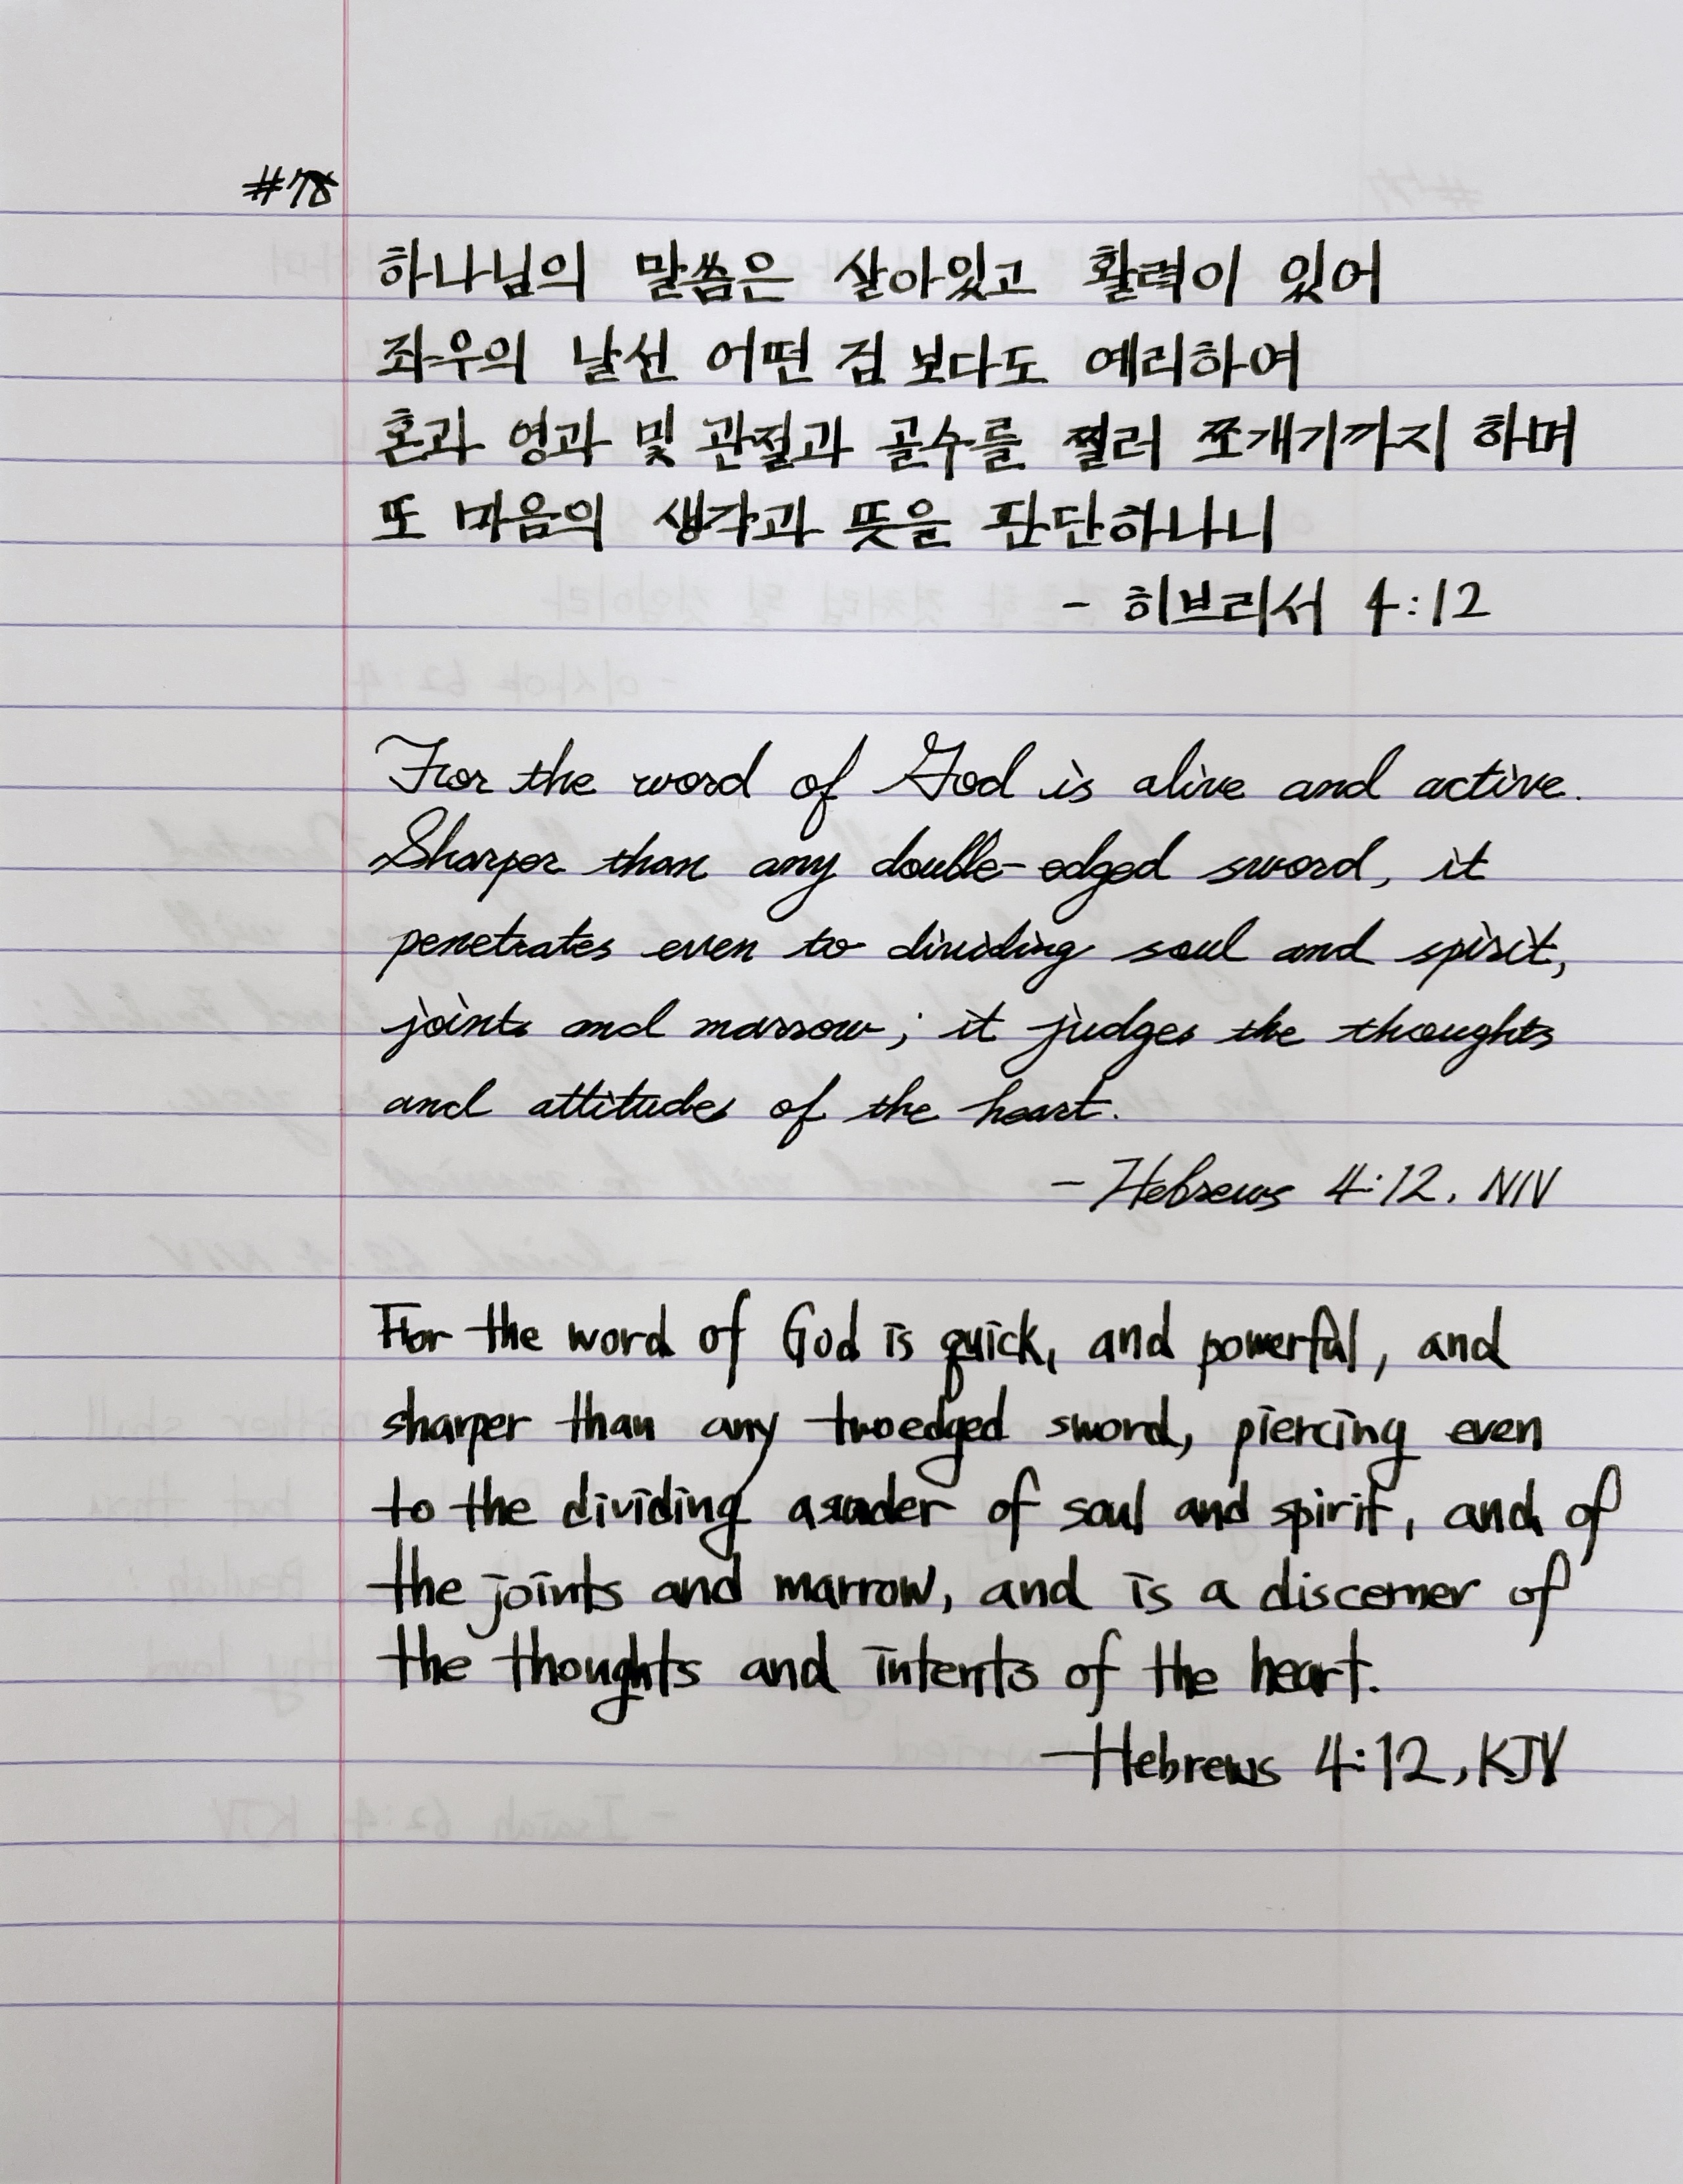 #78
하나님의 말씀은 살아있고 활력이 있어
좌우의 날선 어떤 검 보다도 예리하여
혼과 영과 및 관절과 골수를 찔러 쪼개기까지 하며
또 마음의 생각과 뜻을 판단하나니
- 히브리서 4:12
For the word of God is alive and active.
Sharper than any double-edged sword, it
penetrates even to dividing soul and spirit,
joints and marrow; it judges the thoughts
and attitudes of the heart.
- Hebrews 4:12, NIV
For the word of God is quick, and powerful, and
sharper than any twoedged sword, piercing even
to the dividing asunder of soul and spirit, and of
the joints and marrow, and is a discerner of
the thoughts and intents of the heart.
- Hebrews 4:12, KJV